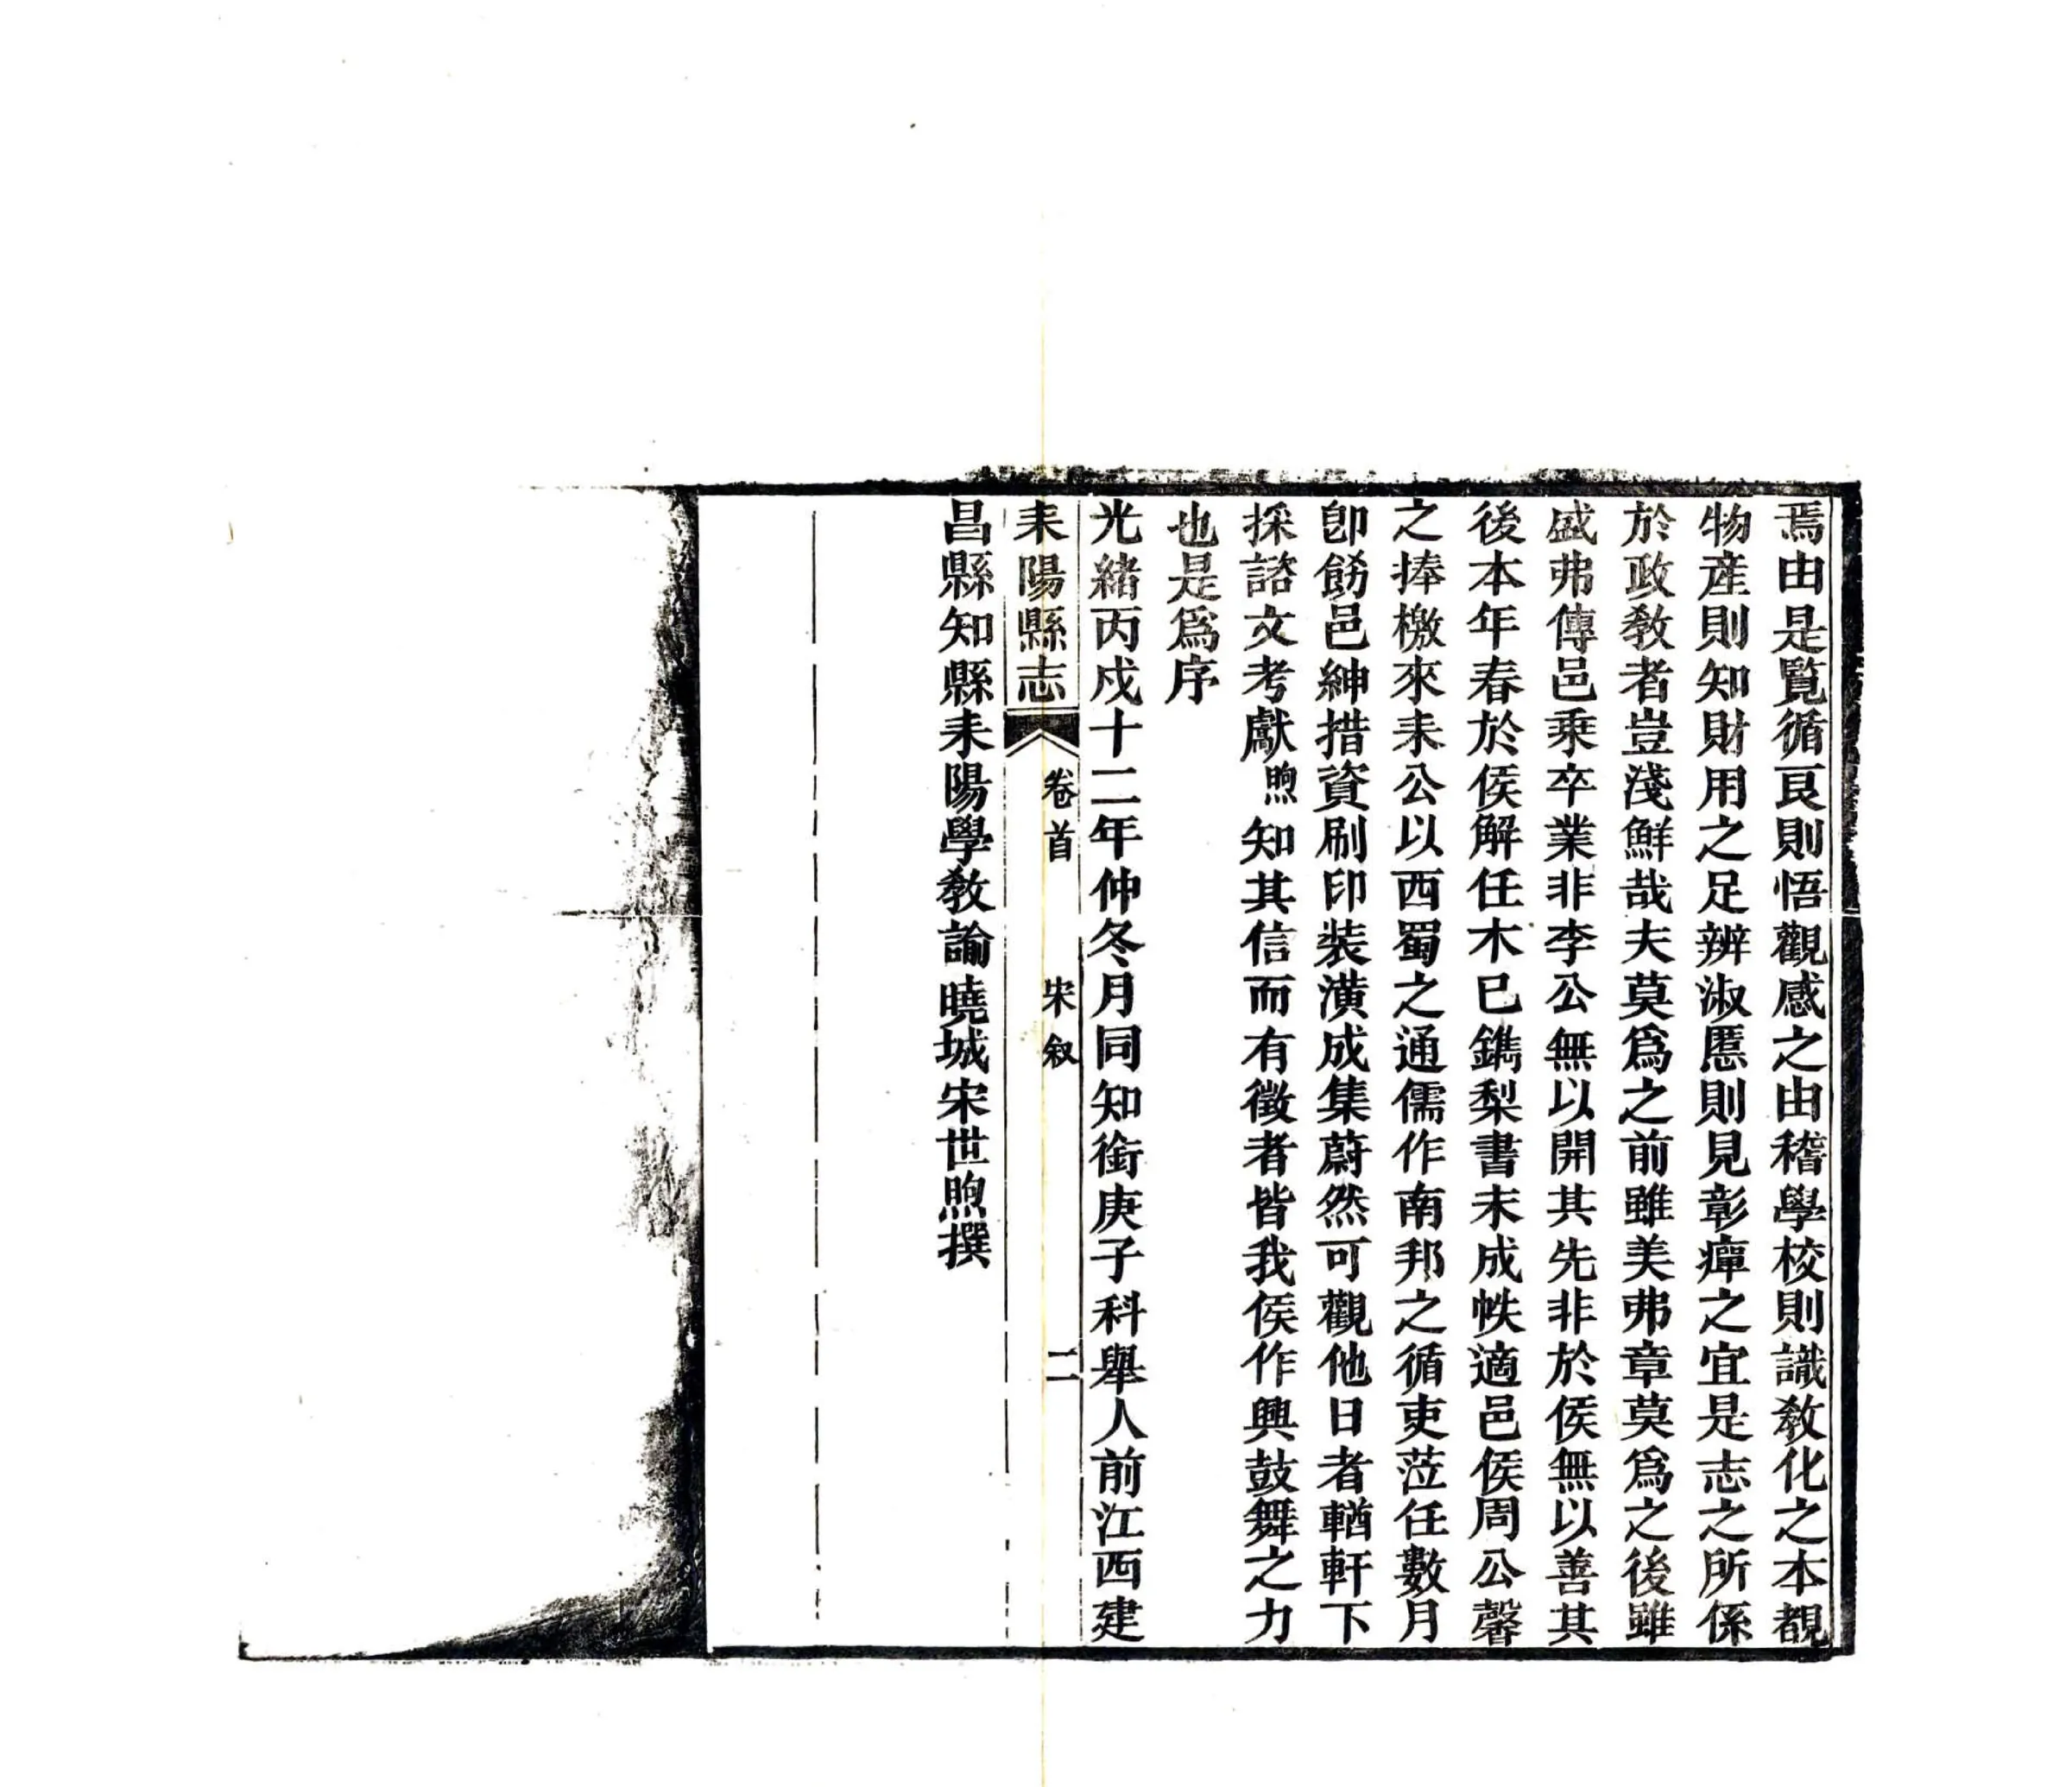 焉由是覧循良則悟觀感之由稽學校則識敎化之本覩
物產則知財用之足辨淑慝則見彰癉之宜是志之所係
於政敎者豈淺鮮哉夫莫爲之前雖美弗章莫爲之後雖
盛弗傳邑乘卒業非李公無以開其先非於侯無以善其
後本年春於侯解任木已鐫梨書未成帙適邑侯周公馨
之捧檄來耒公以西蜀之通儒作南邦之循吏蒞任數月
卽飭邑紳措資刷印装潢成集蔚然可觀他日者輶軒下
採諮文考獻煦知其信而有徵者皆我侯作興鼓舞之力
也是爲序
光緒丙戍十二年仲冬月同知銜庚子科舉人前江西建
耒陽縣志
卷首
宋叙
二
昌縣知縣耒陽學敎諭曉城宋世煦撰